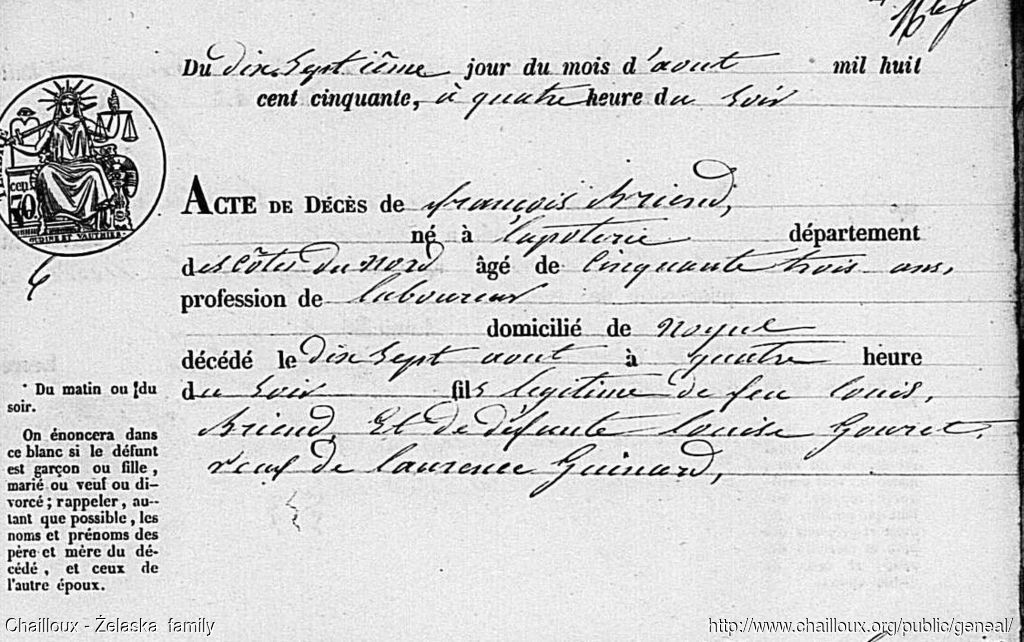 Du dix Septième jour du mois d'aout mil huit
cent cinquante, à quatre heure du Soir
ACTE DE DÉCÈS de françois Briend,
né à lapoterie département
des Côtes du Nord âgé de Cinquante trois ans,
profession de laboureur
domicilié de noyal
décédé le dix Sept aout à quatre heure
du Soir fils legitime de feu louis,
Briend, Et de défunte louise Gouret,
veuf de laurence Guinard,
* Du matin ou du
soir.
On énoncera dans
ce blanc si le défunt
est garçon ou fille,
marié ou veuf ou di-
vorcé; rappeler, au-
tant que possible, les
noms et prénoms des
père et mère du dé-
cédé, et ceux de
l'autre époux.
Chailloux - Želaska family
http://www.chailloux.org/public/geneal/